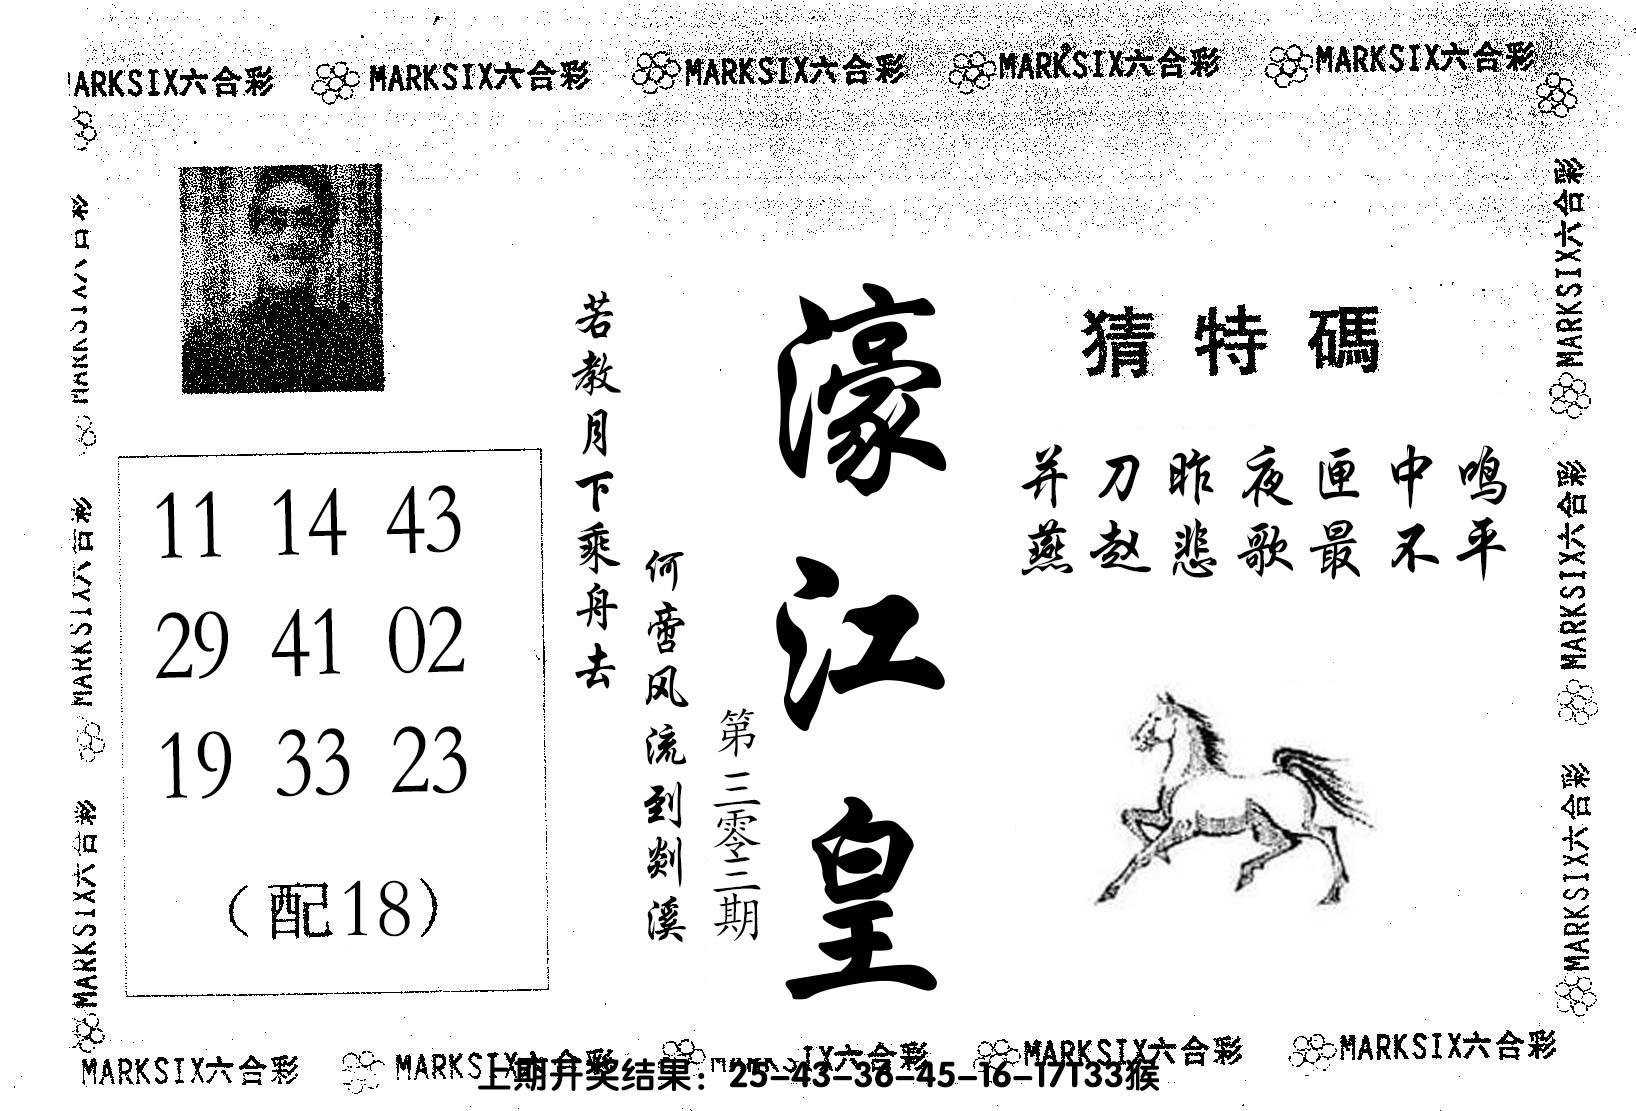 MARKSIX六合彩 MARKSIX六合彩 MARKSIX六合彩 MARKSIX六合彩 MARKSIX六合彩
MARKSIX六合彩
MARKSIX六合彩
MARKSIX六合彩
11 14 43
29 41 02
19 33 23
(配18)
若教月下乘舟去
何啻风流到剡溪
第三零三期
濠江皇
猜特碼
并刀昨夜匣中鸣
燕赵悲歌最不平
MARKSIX六合彩
MARKSIX六合彩
MARKSIX六合彩
MARKSIX六合彩 MARKSIX六合彩 MARKSIX六合彩 MARKSIX六合彩 MARKSIX六合彩
上期开奖结果：25-43-36-45-16-17T33猴